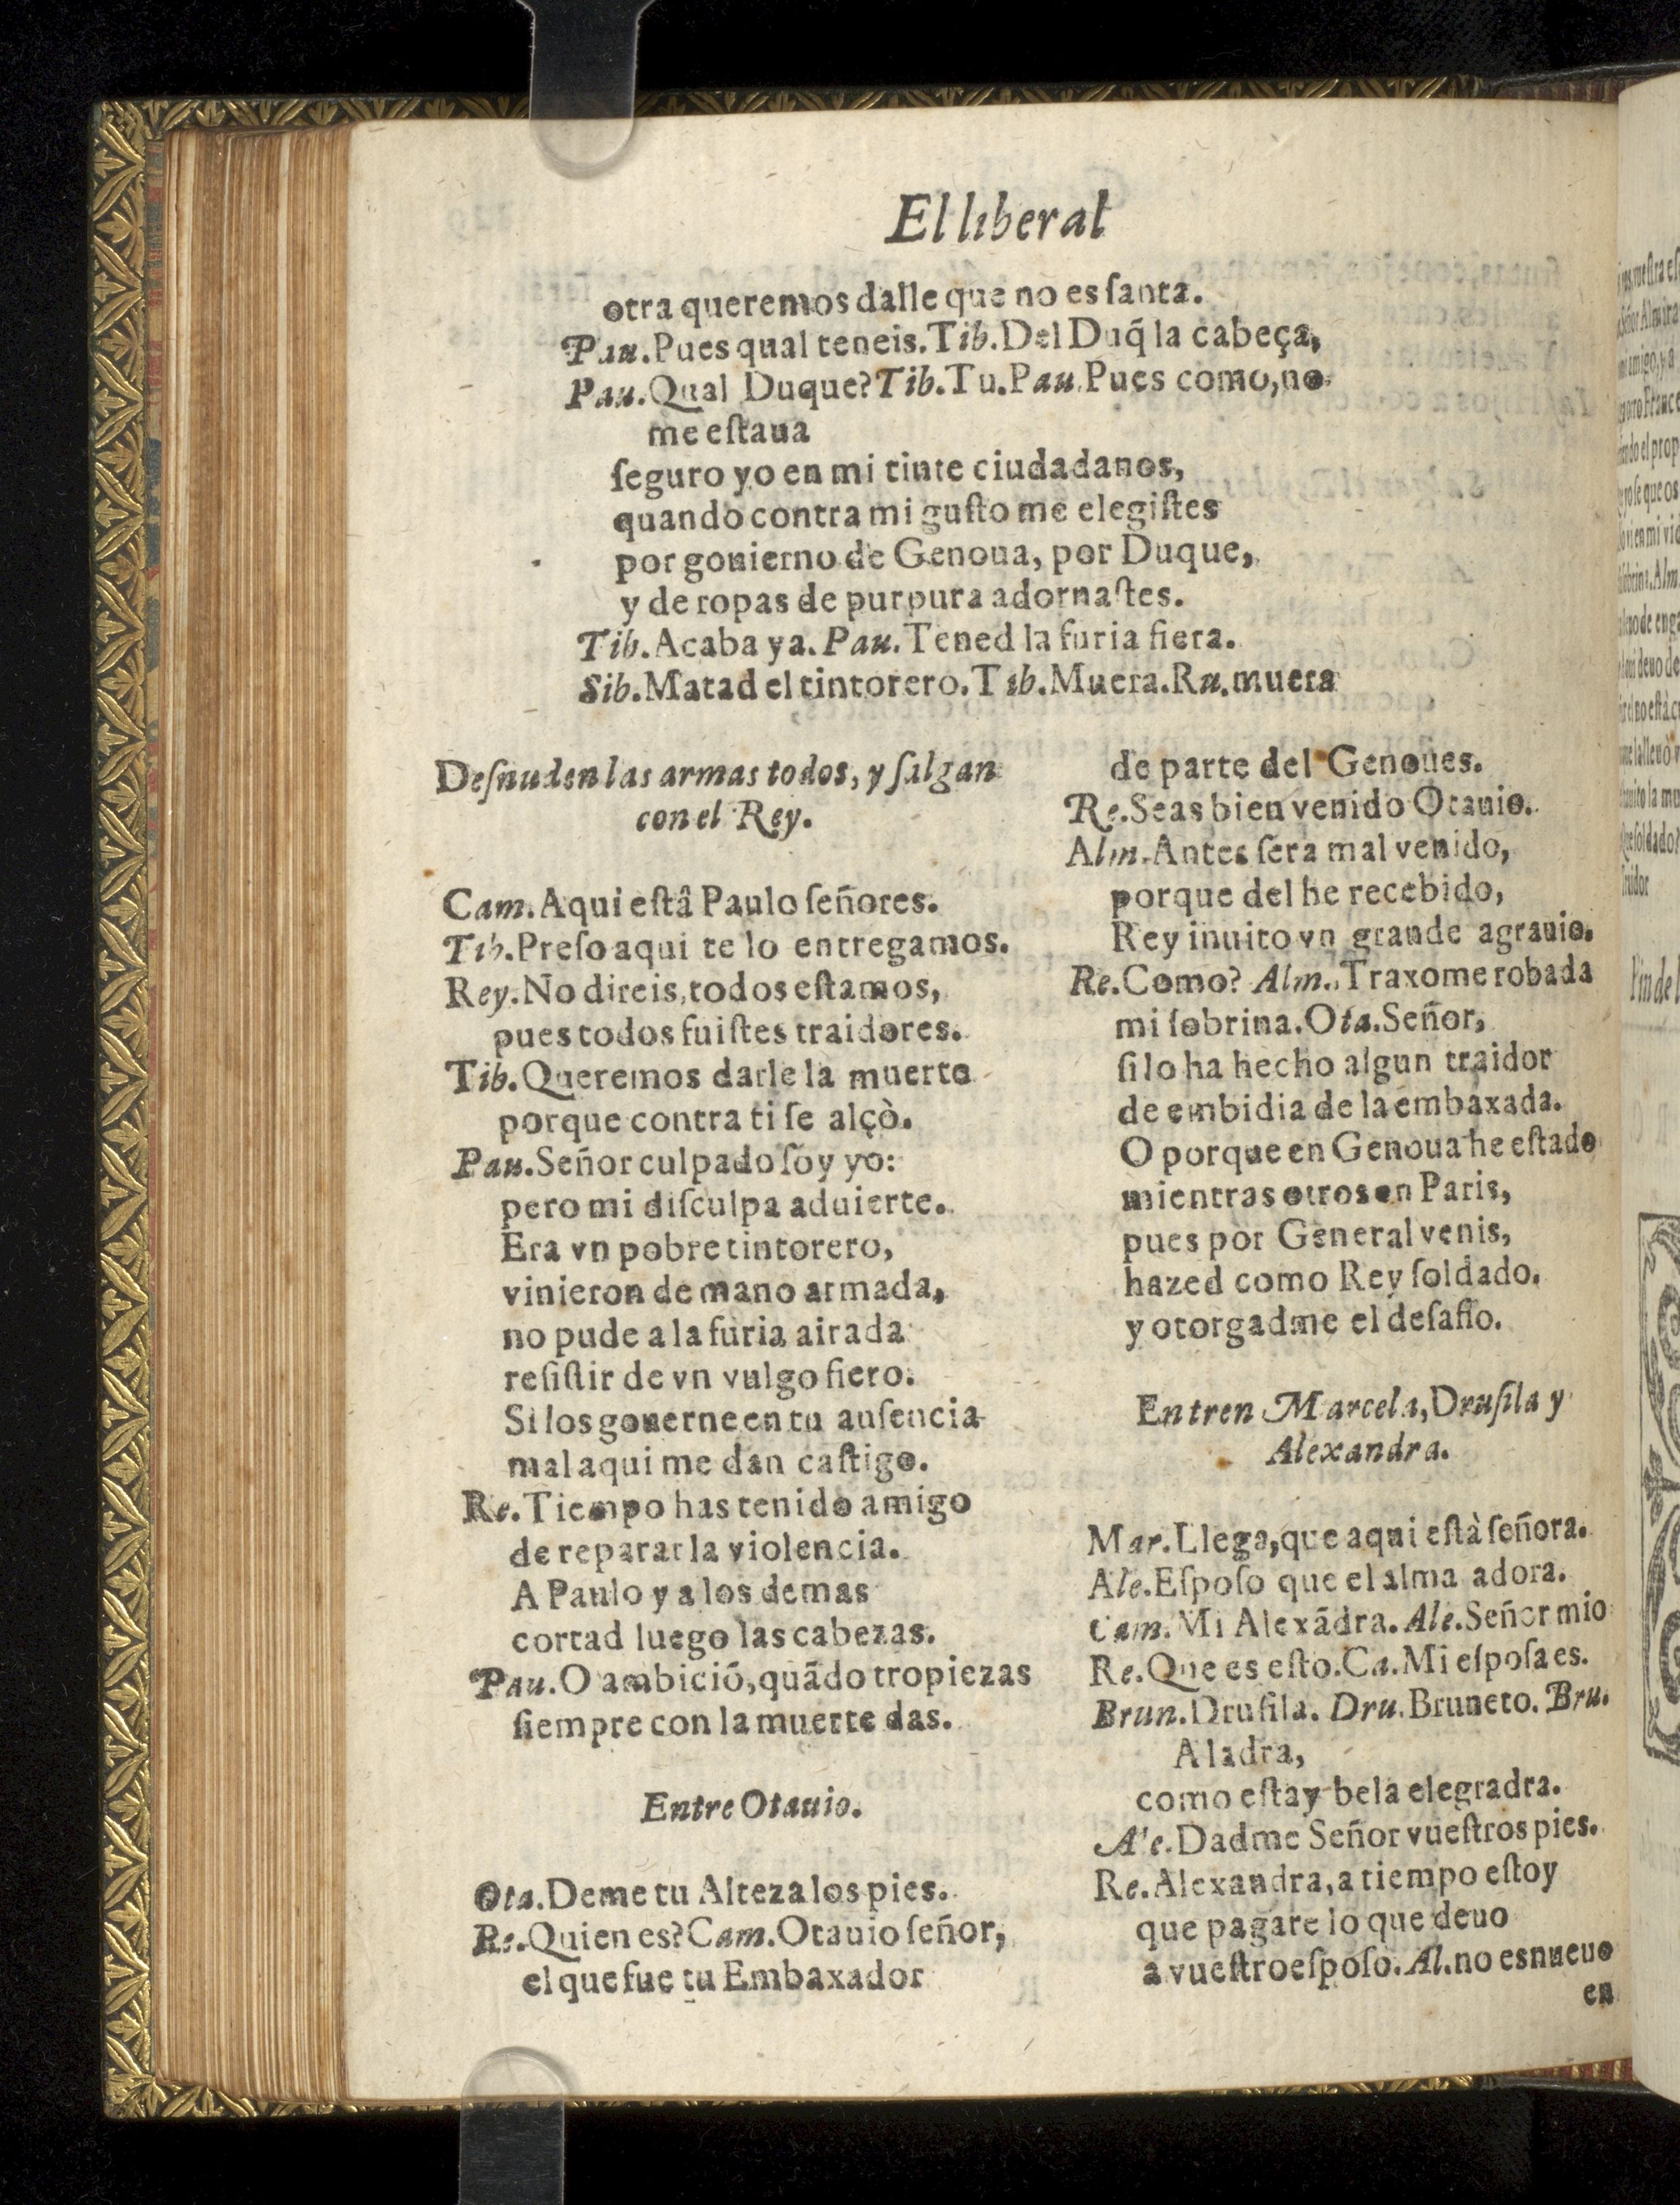 El liberal
otra queremos dalle que no es ſanta.
Pau.Pues qual teneis.Tib.Del Duq̃ la cabeça,
Pau.Qual Duque?Tib.Tu.Pau.Pues como,no
me eſtaua
ſeguro yo en mi tinte ciudadanos,
quando contra mi guſto me elegiſtes
por gouierno de Genoua, por Duque,
y de ropas de purpura adornaſtes.
Tib.Acaba ya. Pau.Tened la furia fiera.
Sib.Matad el tintorero.Tib.Muera.Ru.muera
Deſnuden las armas todos, y ſalgan
con el Rey.
Cam.Aqui eſtâ Paulo ſeñores.
Tib.Preſo aqui te lo entregamos.
Rey.No direis,todos eſtamos,
pues todos fuiſtes traidores.
Tib.Queremos darle la muerte
porque contra ti ſe alçò.
Pau.Señor culpado ſoy yo:
pero mi diſculpa aduierte.
Era vn pobre tintorero,
vinieron de mano armada,
no pude a la furia airada
reſiſtir de vn vulgo fiero.
Si los gouerne en tu auſencia
mal aqui me dan caſtigo.
Re.Tiempo has tenido amigo
de reparar la violencia.
A Paulo y a los demas
cortad luego las cabezas.
Pau.O ambiciõ,quãdo tropiezas
ſiempre con la muerte das.
Entre Otauio.
Ota.Deme tu Alteza los pies.
Re.Quien es?Cam.Otauio ſeñor,
el que fue tu Embaxador
de parte del Genoues.
Re.Seas bien venido Otauio.
Alm.Antes ſera mal venido,
porque del he recebido,
Rey inuito vn grande agrauio.
Re.Como? Alm.Traxome robada
mi ſobrina.Ota.Señor,
ſi lo ha hecho algun traidor
de embidia de la embaxada.
O porque en Genoua he eſtado
mientras otros en Paris,
pues por General venis,
hazed como Rey ſoldado.
y otorgadme el deſafio.
Entren Marcela,Druſila y
Alexandra.
Mar.Llega,que aqui eſtà ſeñora.
Ale.Eſpoſo que el alma adora.
Cam.Mi Alexãdra. Ale.Señor mio
Re.Que es eſto.Ca.Mi eſpoſa es.
Brun.Druſila. Dru.Bruneto. Bru.
A ladra,
como eſtay bela elegradra.
Ale.Dadme Señor vueſtros pies.
Re.Alexandra,a tiempo eſtoy
que pagare lo que deuo
a vueſtro eſpoſo.Al.no es nueuo
en